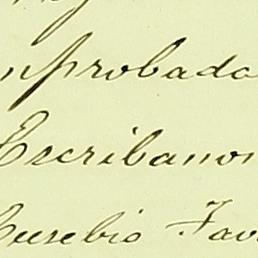 mprobada
Escribanos
Eusebio Fav